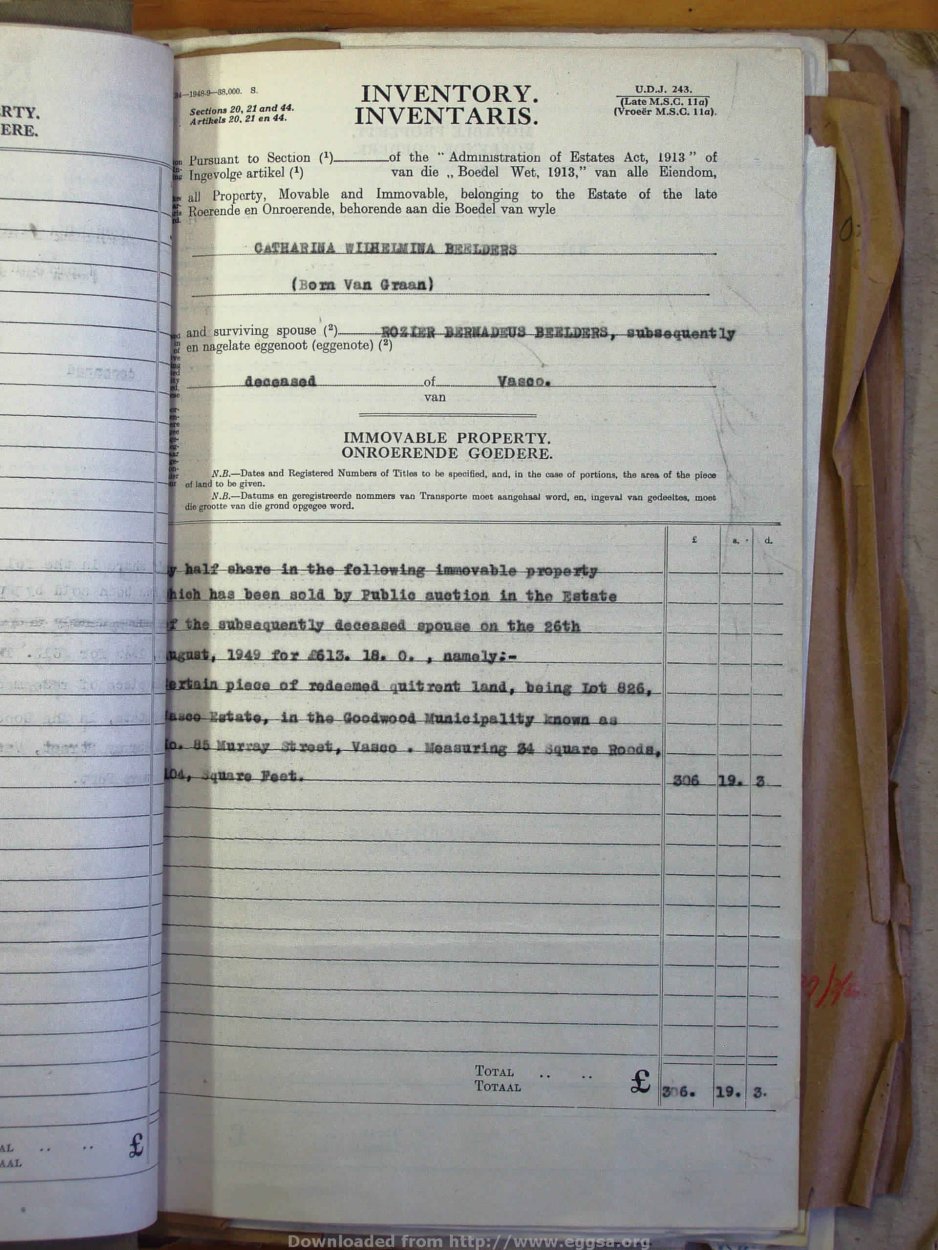 RTY.
ERE.
—1948-9—88,000. S.
Sections 20, 21 and 44.
Artikels 20, 21 en 44.
INVENTORY.
INVENTARIS.
U.D.J. 243.
(Late M.S.C. 11a)
(Vroeër M.S.C. 11a).
Pursuant to Section (¹) of the "Administration of Estates Act, 1913" of
Ingevolge artikel (¹) van die „Boedel Wet, 1913," van alle Eiendom,
all Property, Movable and Immovable, belonging to the Estate of the late
Roerende en Onroerende, behorende aan die Boedel van wyle
CATHARINA WILHELMINA BEELDERS
(Born Van Graan)
and surviving spouse (²) ROZIER BERNADEUS BEELDERS, subsequently
en nagelate eggenoot (eggenote) (²)
deceased of Vasco.
van
IMMOVABLE PROPERTY.
ONROERENDE GOEDERE.
N.B.—Dates and Registered Numbers of Titles to be specified, and, in the case of portions, the area of the piece
of land to be given.
N.B.—Datums en geregistreerde nommers van Transporte moet aangehaal word, en, ingeval van gedeeltes, moet
die grootte van die grond opgegee word.
£ s. d.
y half share in the following immovable property
hich has been sold by Public auction in the Estate
f the subsequently deceased spouse on the 26th
ugust, 1949 for £613. 18. 0. , namely:-
ertain piece of redeemed quitrent land, being Lot 826,
asco Estate, in the Goodwood Municipality known as
o. 85 Murray Street, Vasco . Measuring 34 Square Roods,
104, Square Feet. 306 19. 3
TOTAL .. ..
TOTAAL £ 306. 19. 3.
AL .. .. £
AAL
Downloaded from http://www.eggsa.org